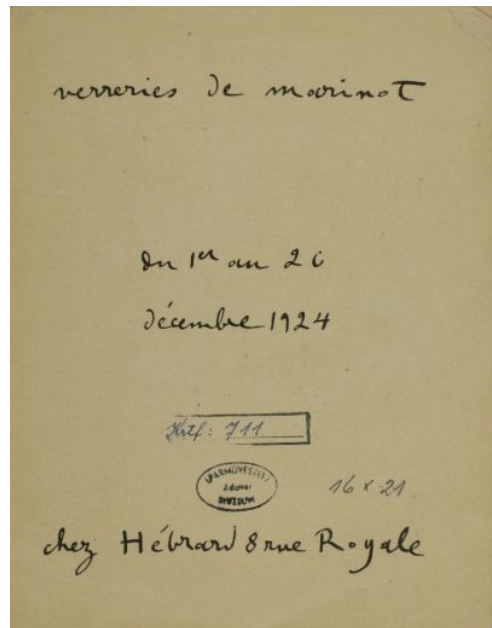 verreries de marinot
du 1er au 20
décembre 1924
Krtf: 711
IPARMŰVÉSZETI
Adattár
MÚZEUM
16 x 21
chez Hébrard 8 rue Royale